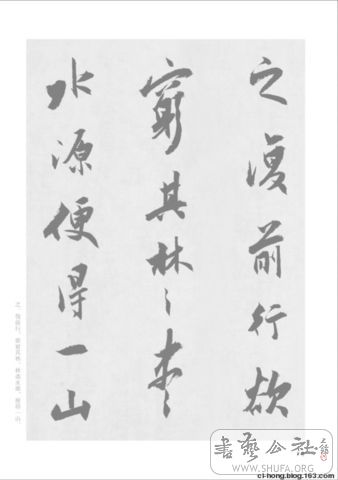 之復前行欲
窮其林〻盡
水源便得一山
之。復前行,欲窮其林。林盡水源,便得一山,
書藝公社
WWW.SHUFA.ORG
cl-hong.blog.163.com